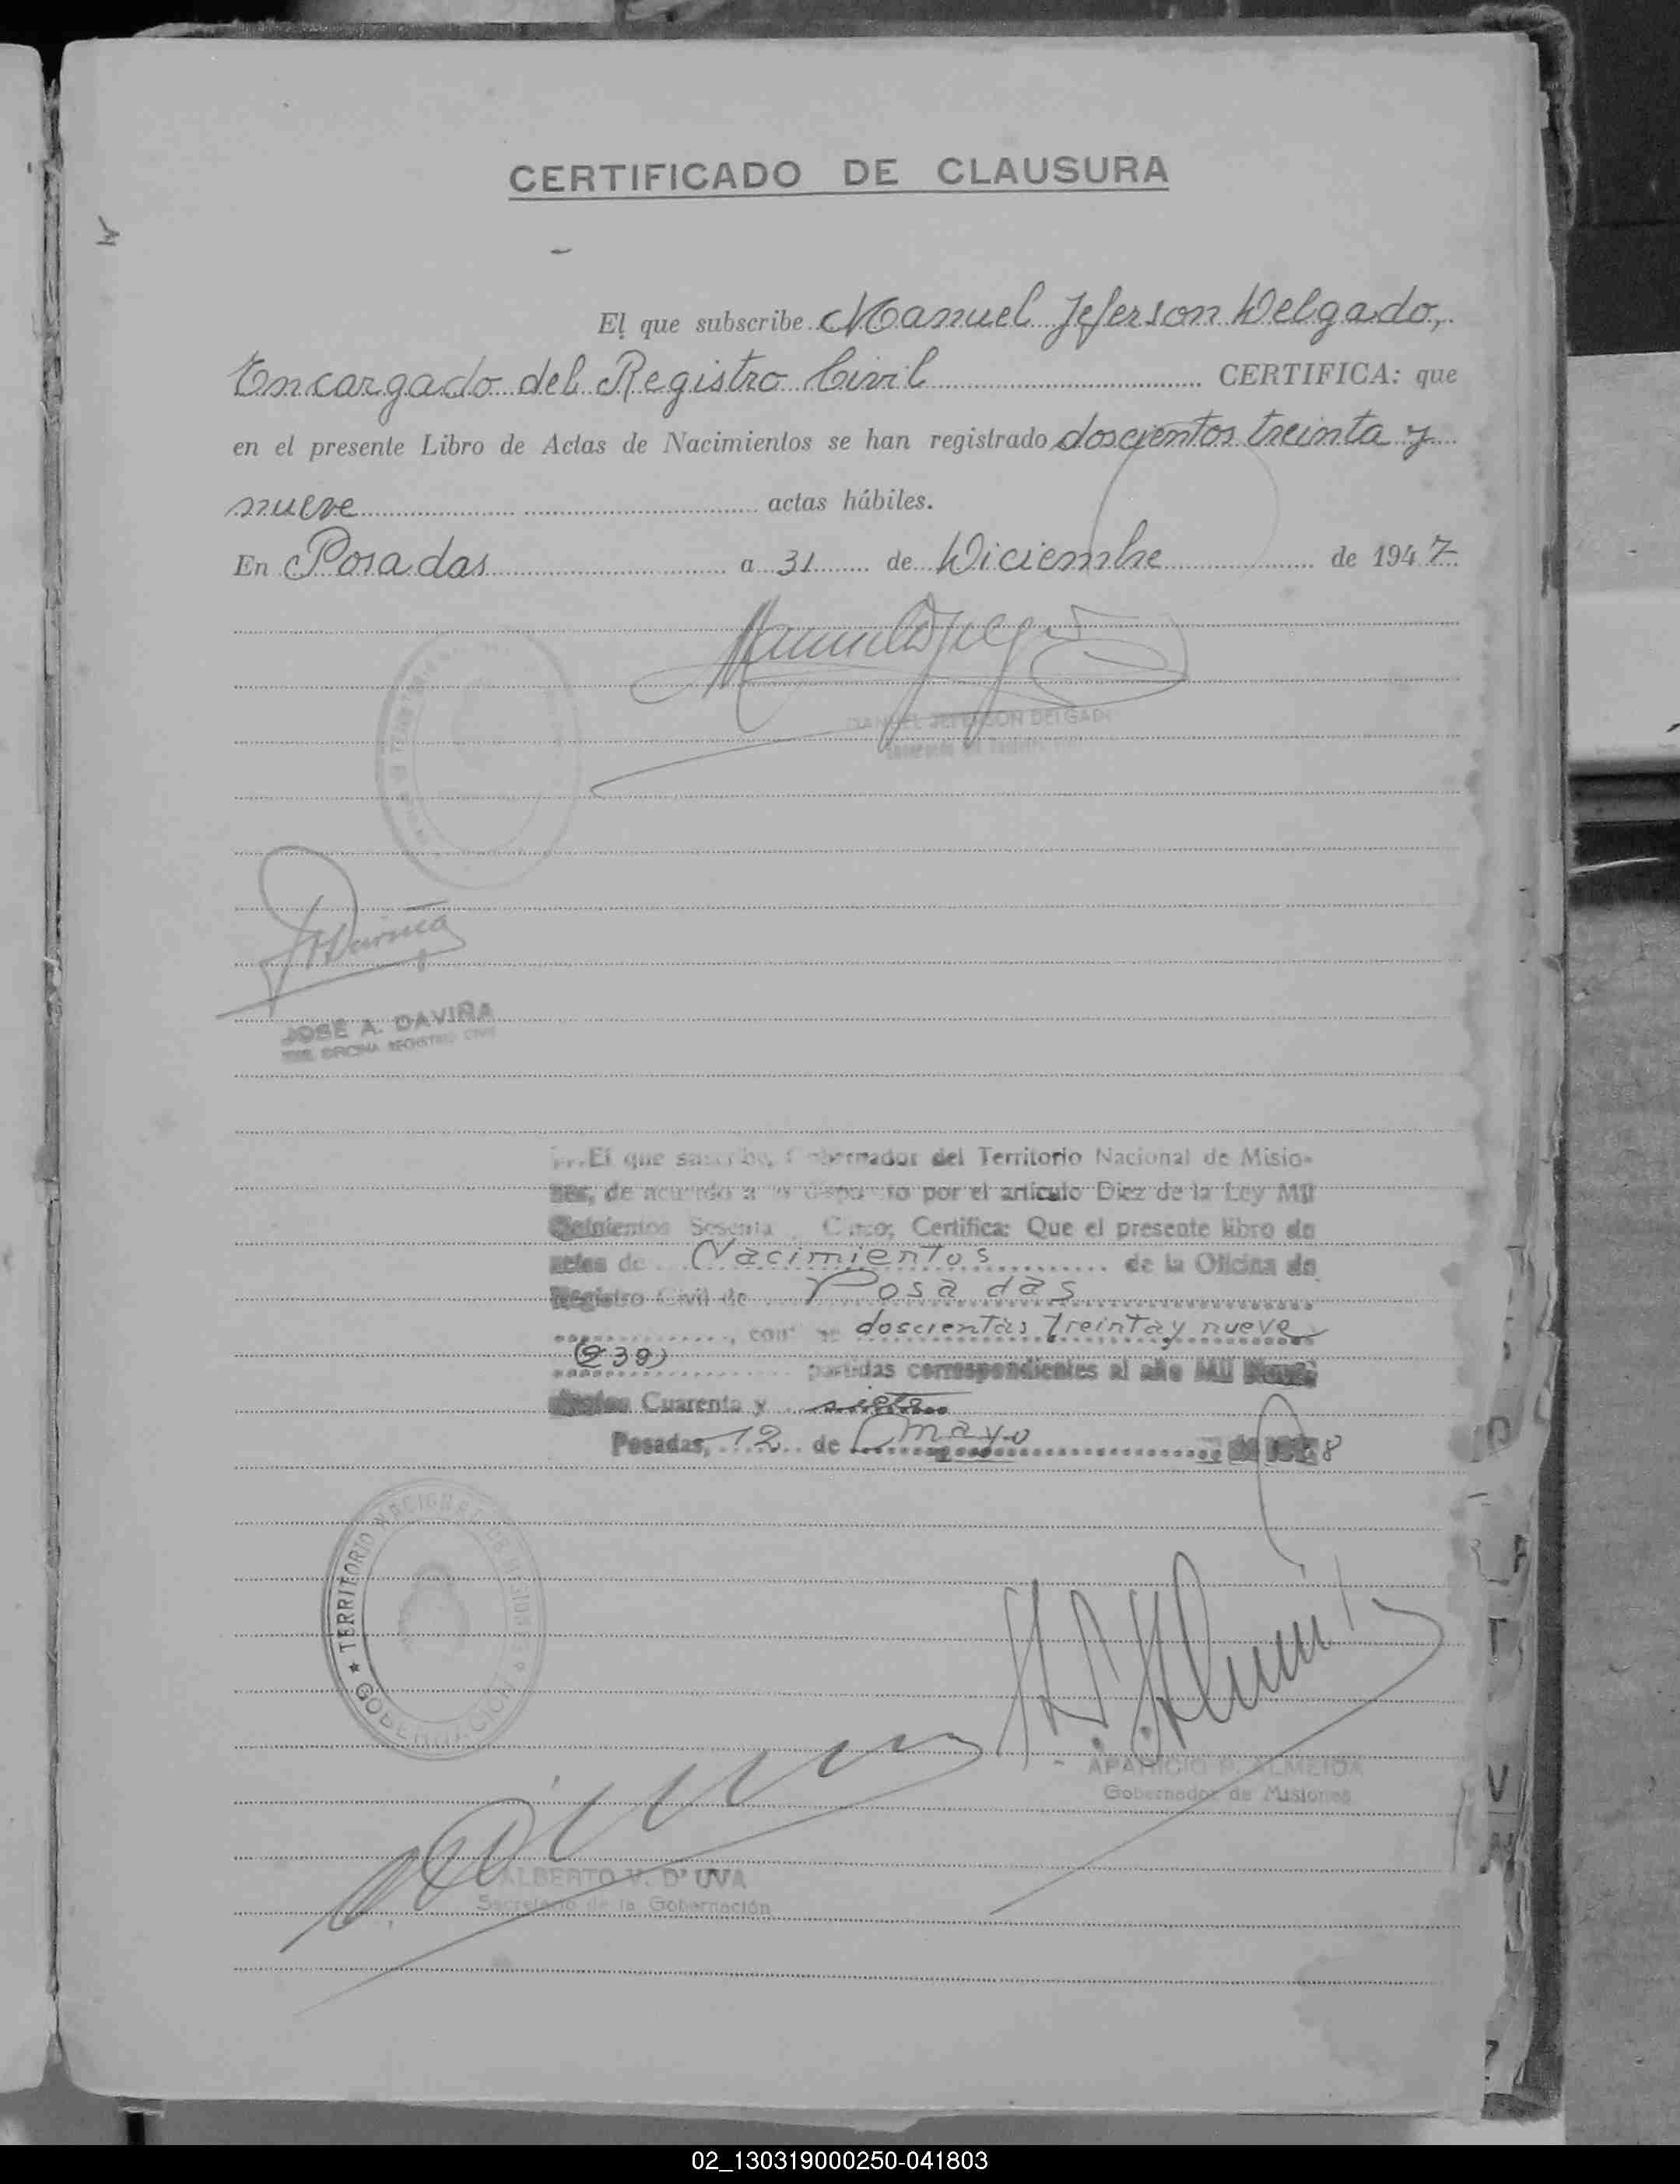 CERTIFICADO DE CLAUSURA
El que subscribe Manuel Jeferson Delgado,
Encargado del Registro Civil CERTIFICA: que
en el presente Libro de Actas de Nacimientos se han registrado doscientos treinta y
nueve actas hábiles.
En Posadas a 31 de Diciembre de 1947
MANUEL JEFERSON DELGADO
JOSÉ A. DAVIÑA
OFICINA REGISTRO CIVIL
El que suscribe, Gobernador del Territorio Nacional de Misio-
nes, de acuerdo a lo dispuesto por el artículo Diez de la Ley Mil
Quinientos Sesenta Cinco; Certifica: Que el presente libro de
actas de Nacimientos de la Oficina de
Registro Civil de Posadas
doscientas treinta y nueve
(239) partidas correspondientes al año Mil
Cuarenta y siete
Posadas, 12 de mayo de 1948
TERRITORIO NACIONAL DE MISIONES
GOBERNACION
APARICIO P. ALMEIDA
Gobernador de Misiones
ALBERTO V. D'UVA
Secretario de la Gobernación
02_130319000250-041803